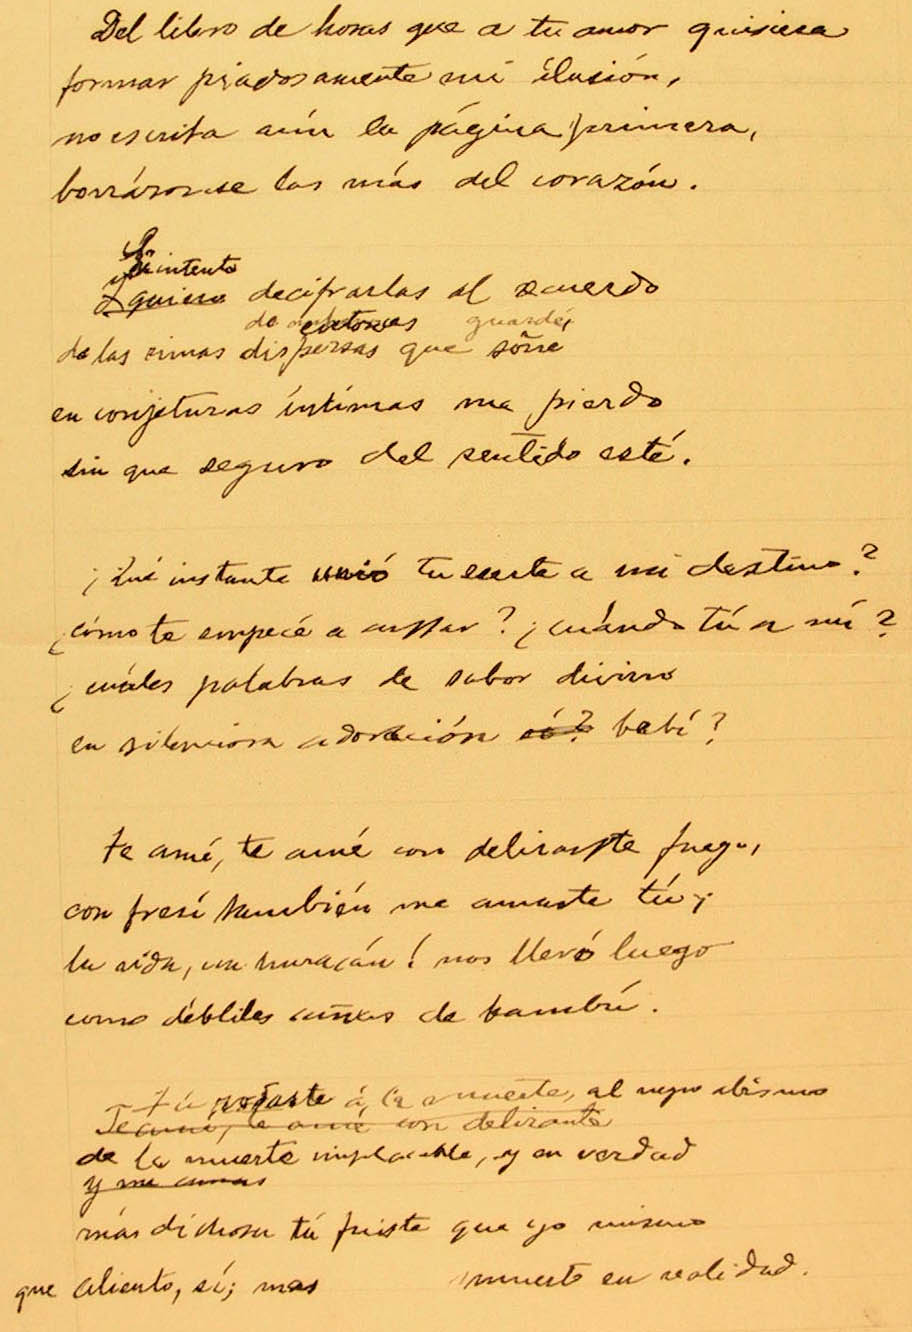 Del libro de horas que a tu amor quisiera
formar piadosamente mi ilusión,
no escrita aún la página primera,
borráronse las más del corazón.
Si intento
y quiero decifrarlas al recuerdo
de entonces guardé,
de las rimas dispersas que soñé
en conjeturas íntimas me pierdo
sin que seguro del sentido esté.
¿Qué instante unió tu suerte a mi destino?
¿cómo te empecé a amar? ¿cuándo tú a mí?
¿cuáles palabras de sabor divino
en silenciosa adoración oí? bebí?
Te amé, te amé con delirante fuego,
con fresí también me amaste tú;
la vida, un huracán! nos llevó luego
como débliles cañas de bambú.
Tú rodaste á la muerte, al negro abismo
Te amé, te amé con delirante
de la muerte implacable, y en verdad
y me amas
más dichosa tú fuiste que yo mismo
que aliento, sí; mas muerto en realidad.